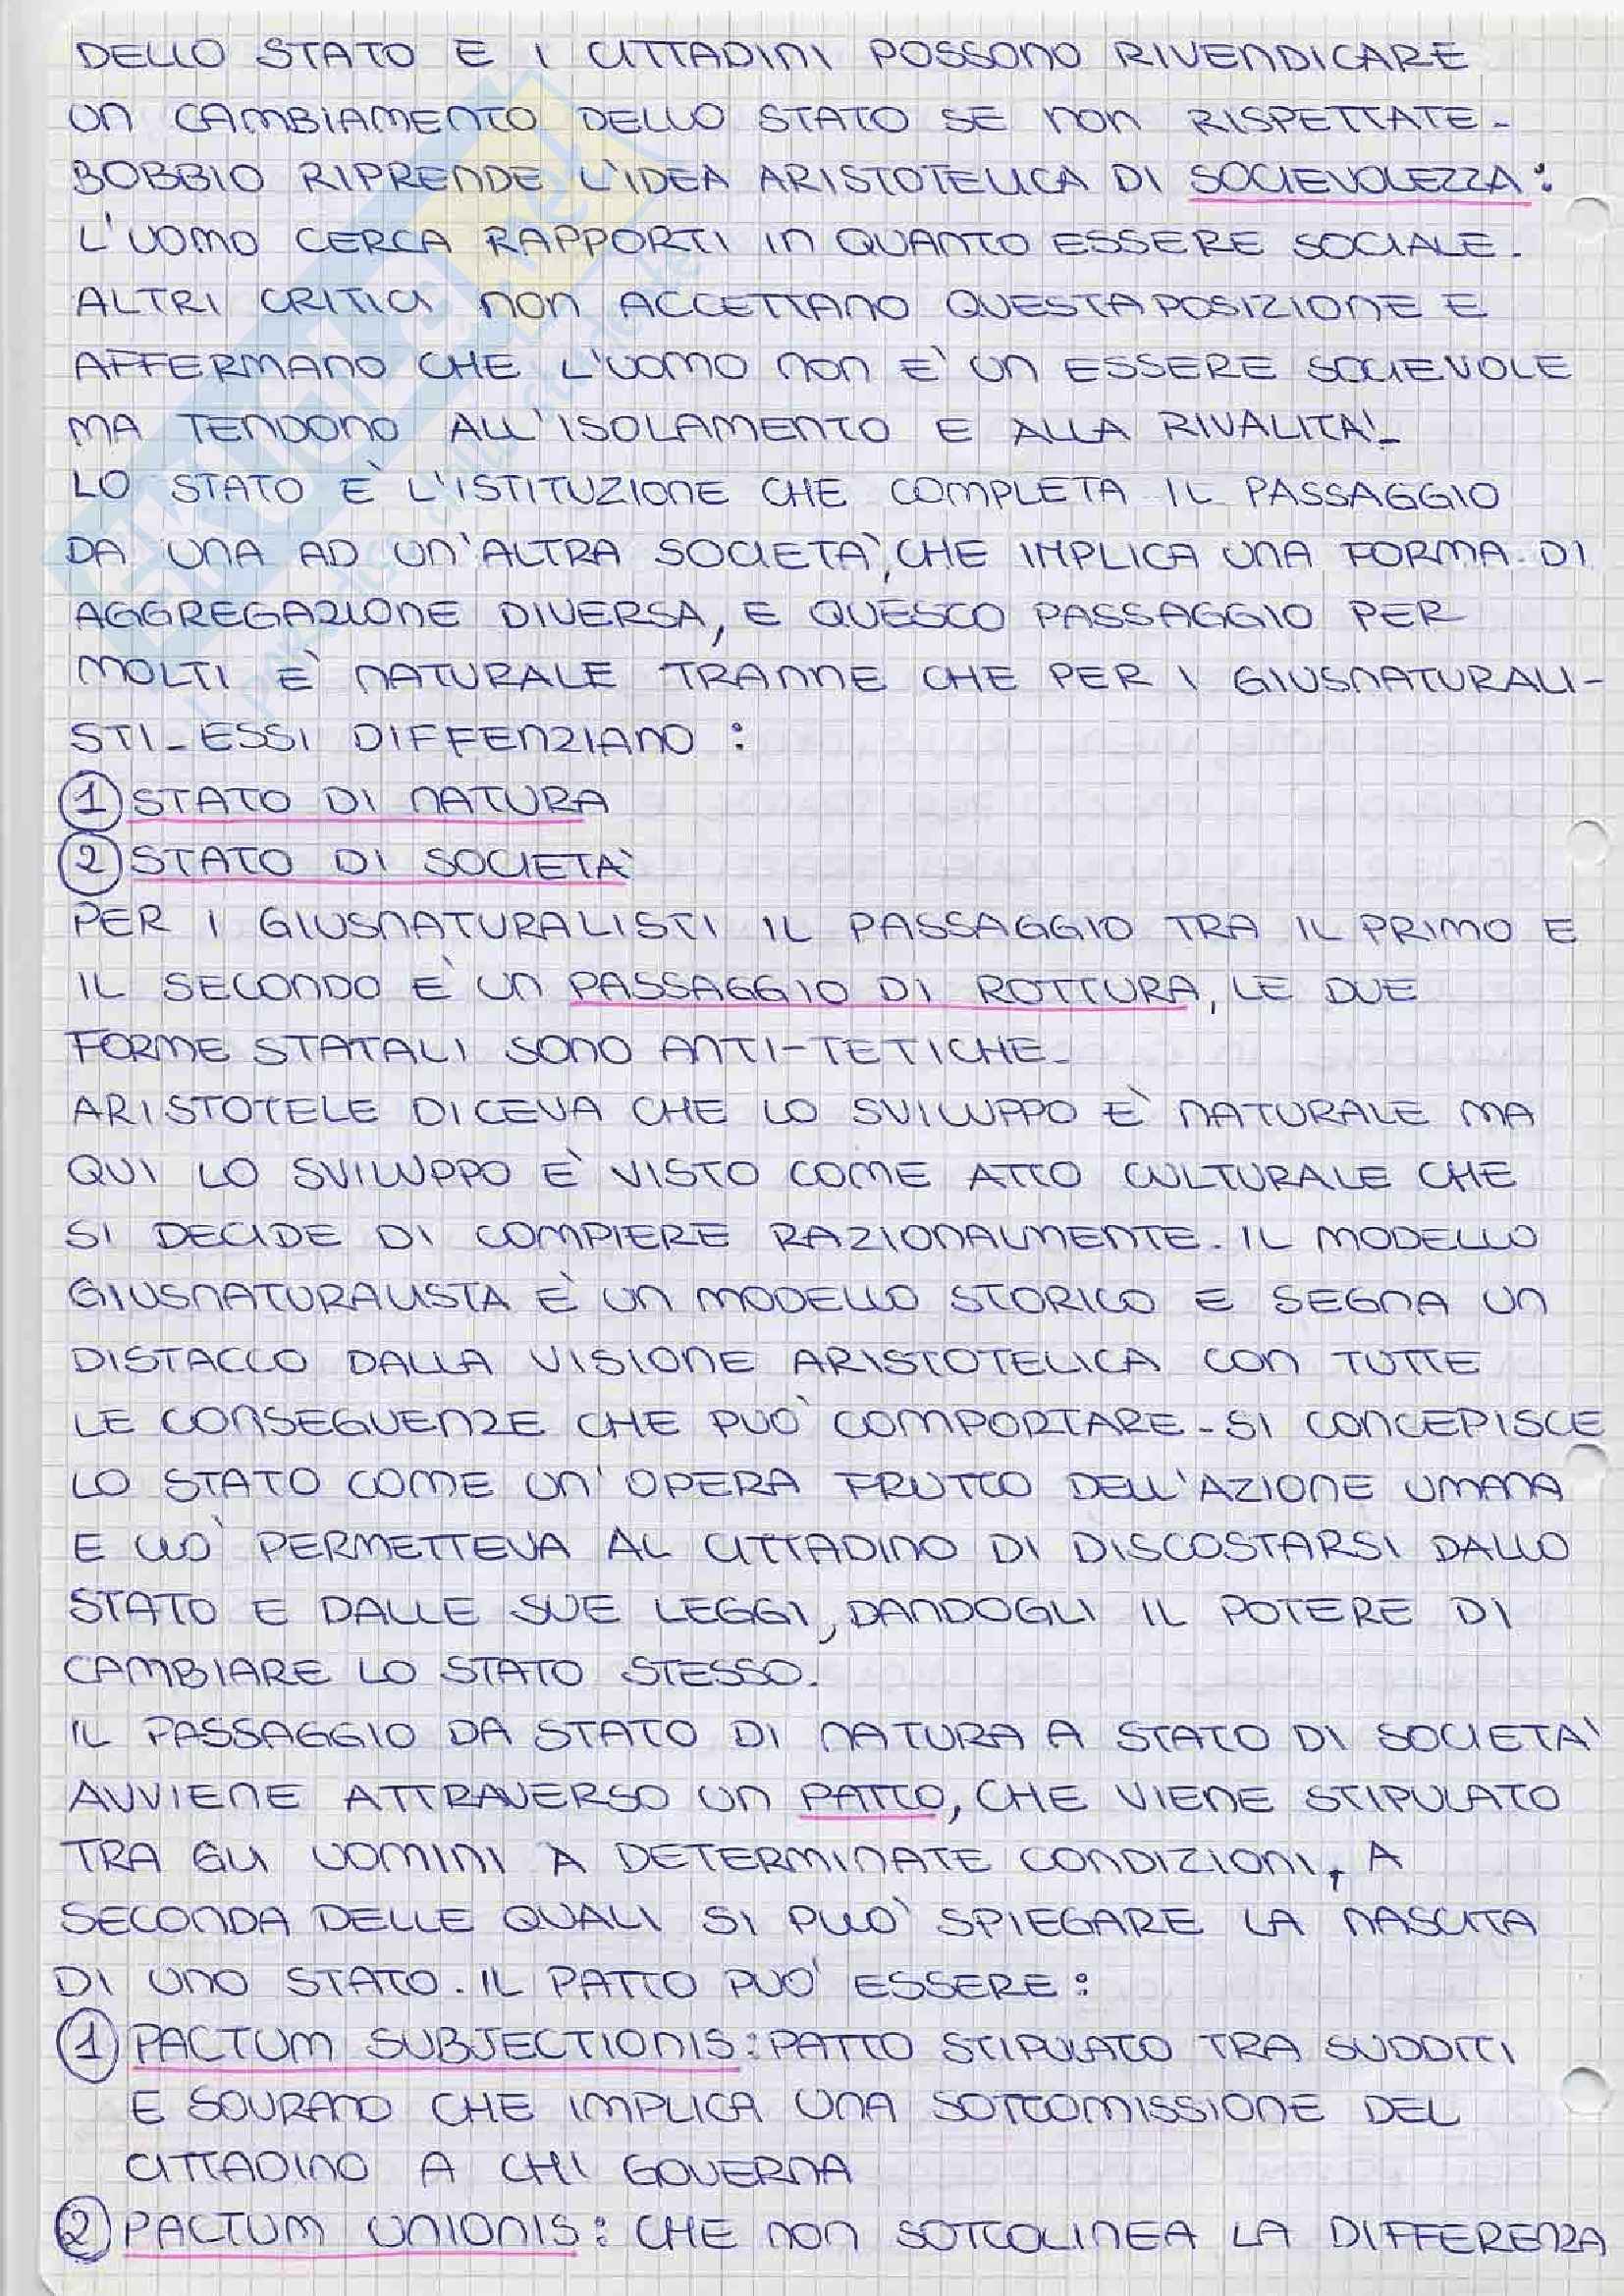 DELLO STATO E I CITTADINI POSSONO RIVENDICARE
UN CAMBIAMENTO DELLO STATO SE NON RISPETTATE.
BOBBIO RIPRENDE L'IDEA ARISTOTELICA DI SOCIEVOLEZZA:
L'UOMO CERCA RAPPORTI IN QUANTO ESSERE SOCIALE.
ALTRI CRITICI NON ACCETTANO QUESTA POSIZIONE E
AFFERMANO CHE L'UOMO NON E' UN ESSERE SOCIEVOLE
MA TENDONO ALL'ISOLAMENTO E ALLA RIVALITA'.
LO STATO È L'ISTITUZIONE CHE COMPLETA IL PASSAGGIO
DA UNA AD UN'ALTRA SOCIETA', CHE IMPLICA UNA FORMA DI
AGGREGAZIONE DIVERSA, E QUESTO PASSAGGIO PER
MOLTI E' NATURALE TRANNE CHE PER I GIUSNATURALI-
STI. ESSI DIFFENZIANO:
① STATO DI NATURA
② STATO DI SOCIETA'
PER I GIUSNATURALISTI IL PASSAGGIO TRA IL PRIMO E
IL SECONDO E' UN PASSAGGIO DI ROTTURA, LE DUE
FORME STATALI SONO ANTI-TETICHE.
ARISTOTELE DICEVA CHE LO SVILUPPO E' NATURALE MA
QUI LO SVILUPPO E' VISTO COME ATTO CULTURALE CHE
SI DECIDE DI COMPIERE RAZIONALMENTE. IL MODELLO
GIUSNATURALISTA E' UN MODELLO STORICO E SEGNA UN
DISTACCO DALLA VISIONE ARISTOTELICA CON TUTTE
LE CONSEGUENZE CHE PUO' COMPORTARE. SI CONCEPISCE
LO STATO COME UN'OPERA FRUTTO DELL'AZIONE UMANA
E CIO' PERMETTEVA AL CITTADINO DI DISCOSTARSI DALLO
STATO E DALLE SUE LEGGI, DANDOGLI IL POTERE DI
CAMBIARE LO STATO STESSO.
IL PASSAGGIO DA STATO DI NATURA A STATO DI SOCIETA'
AVVIENE ATTRAVERSO UN PATTO, CHE VIENE STIPULATO
TRA GLI UOMINI A DETERMINATE CONDIZIONI, A
SECONDA DELLE QUALI SI PUO' SPIEGARE LA NASCITA
DI UNO STATO. IL PATTO PUO' ESSERE:
① PACTUM SUBJECTIONIS: PATTO STIPULATO TRA SUDDITI
E SOVRANO CHE IMPLICA UNA SOTTOMISSIONE DEL
CITTADINO A CHI GOVERNA
② PACTUM UNIONIS: CHE NON SOTTOLINEA LA DIFFERENZA